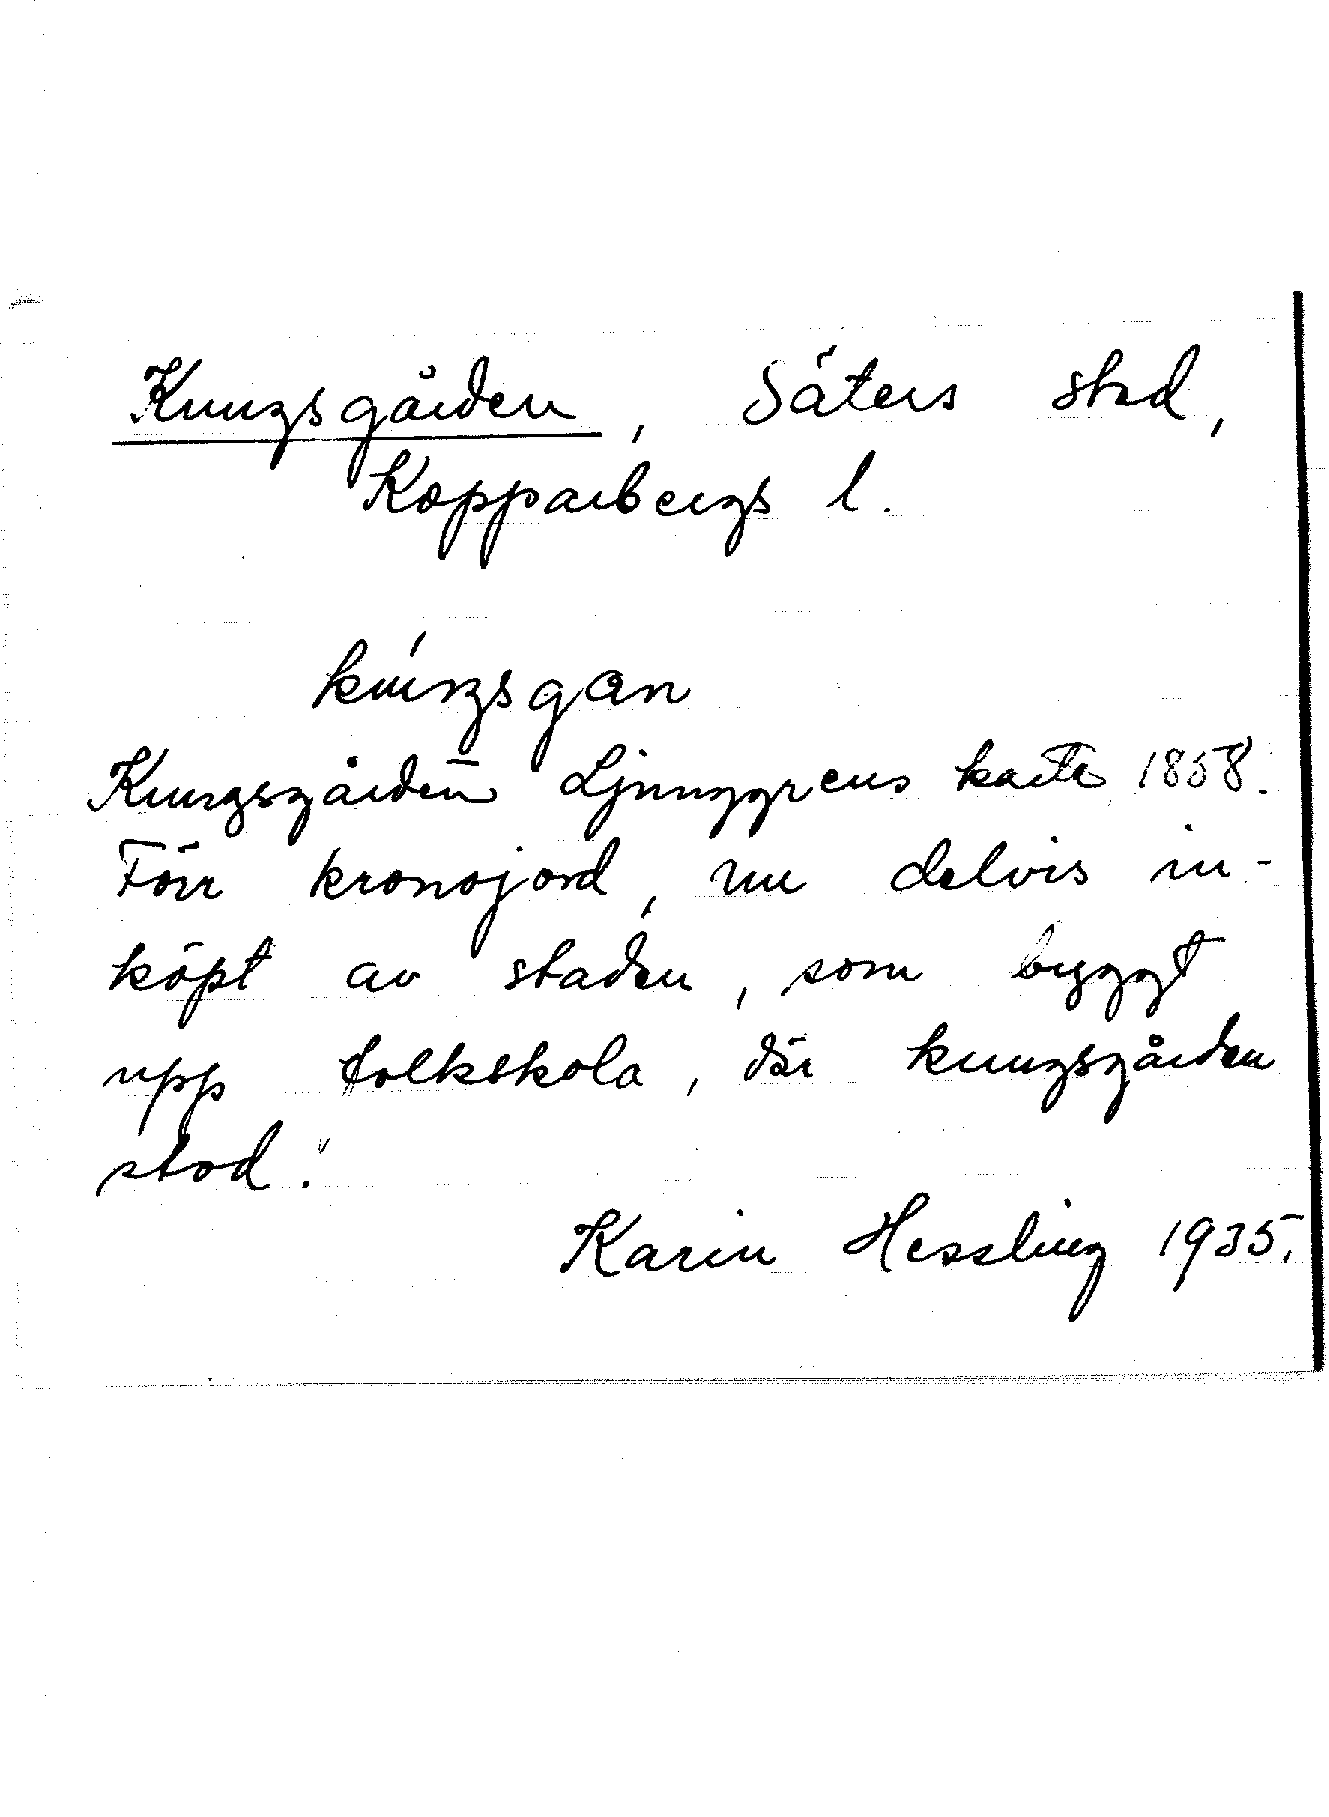 Kungsgården, Säters stad,
Kopparbergs l.
kúngsgan
Kungsgården Ljunggrens karta 1858.
Förr kronojord, nu delvis in-
köpt av staden, som byggt
upp folkskola, där kungsgården
stod."
Karin Hessling 1935.